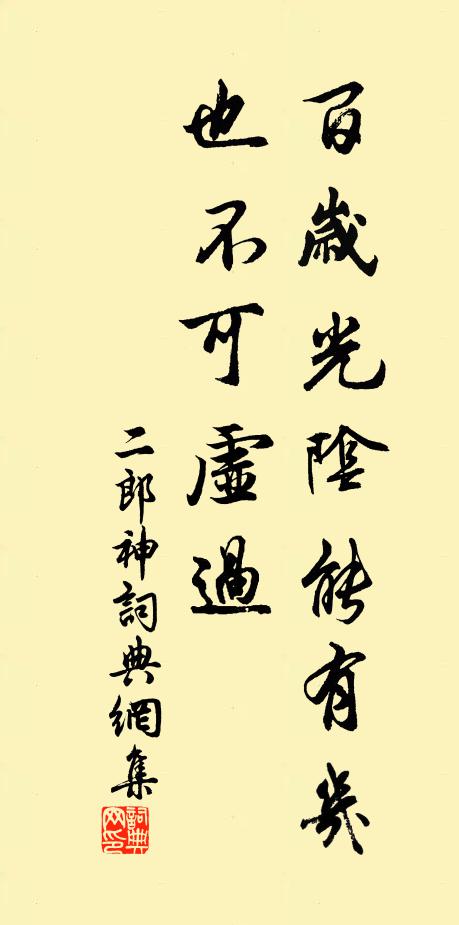 百歲光陰能有幾
也不可虛過
二郎神詞典網集
詞典
网印